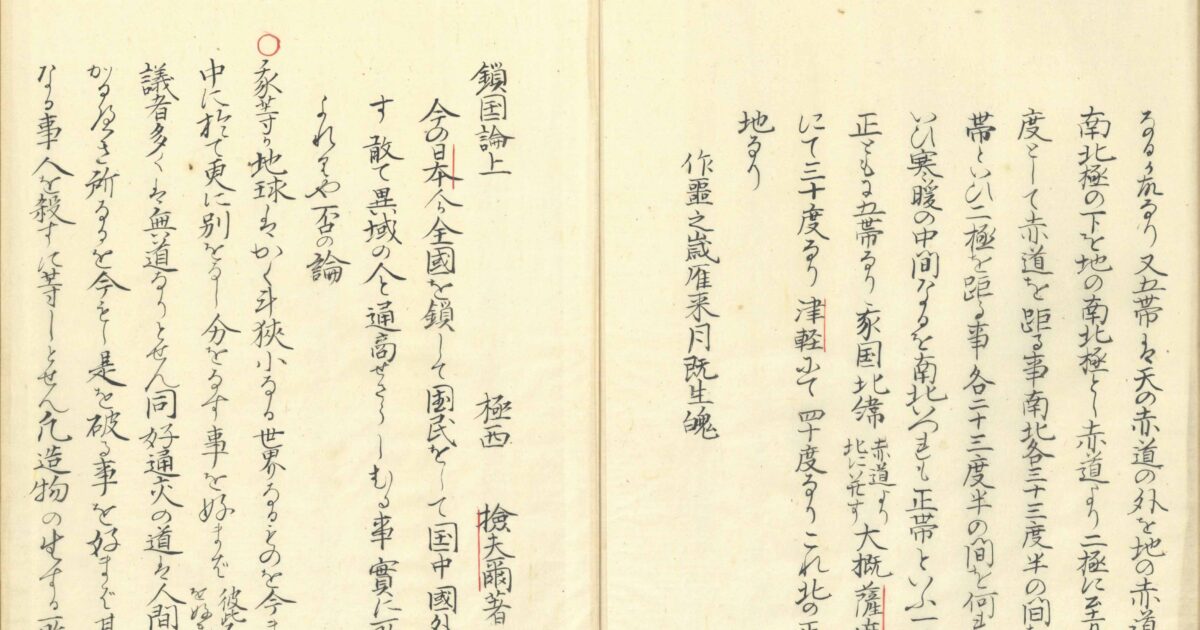 なるか故なり 又五帯は天の赤道の外を地の赤道
南北極の下を地の南北極とし赤道より二極に至
度として赤道を距る事南北各三十三度半の間
帯といひ二極を距る事各二十三度半の間を何
いひ寒暖の中間なるを南北いつれも正帯といふ一
正ともに五帯なり 我国北緯赤道より北に在す大概薩
にて三十度なり 津軽にて四十度なり これ北の正
地なり
作噩之歳雁来月既生魄
鎖国論上 極西 撿夫爾著
今の日本人全國を鎖して国民をして国中國外
す 敢て異域の人と通商せさらしむる事 實に
よれりや否の論
○我等か地球はかく斗狭小なる世界なるものを今
中に於て更に別をなし分をなす事を好まば彼此
議者多くは無道なりとせん同好通交の道は人間
かるへき所なるを今もし是を破る事を好まば其
なる事人を殺すに等しとせん凡造物の生する